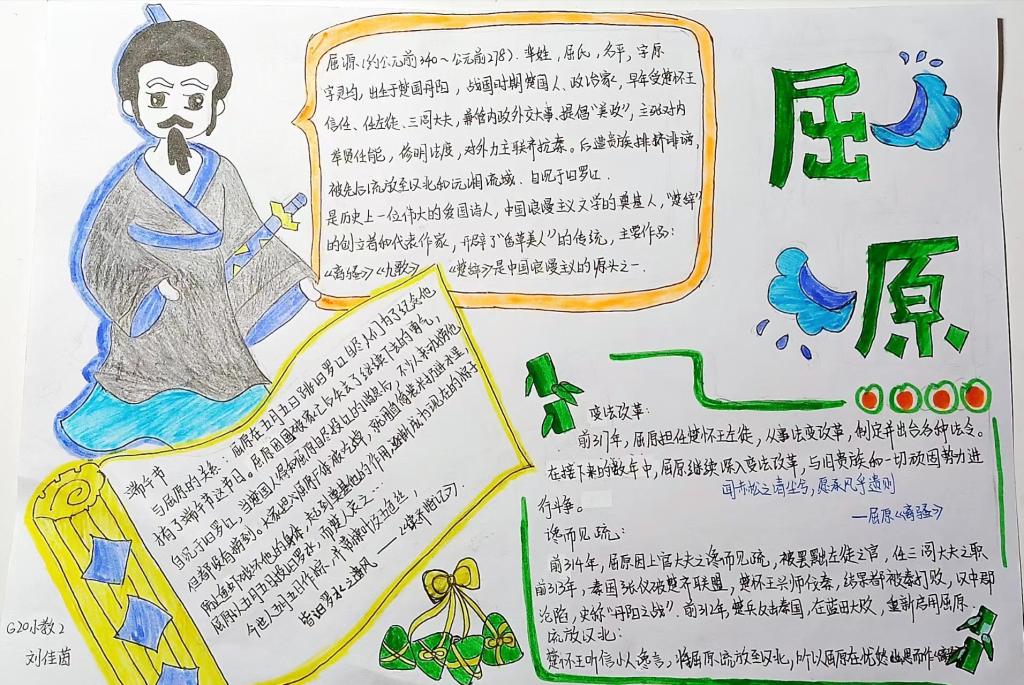 屈原
屈源(约公元前340~公元前278).芈姓,屈氏,名平,字原
字灵均,出生于楚国丹阳,战国时期楚国人、政治家,早年受楚怀王
信任、任左徒、三闾大夫,兼管内政外交大事、提倡“美政”,主张对内
举贤任能,修明法度,对外力主联齐抗秦。后遭贵族排挤诽谤,
被先后流放至汉北和沅湘流域.自沉于汨罗江.
是历史上一位伟大的爱国诗人,中国浪漫主义文学的奠基人,“楚辞”
的创立者和代表作家,开辟了“香草美人”的传统,主要作品:
《离骚》《九歌》 《楚辞》是中国浪漫主义的源头之一.
端午节
与屈原的关系:屈原在五月五日跳汨罗江自尽人们为了纪念他
才有了端午节这节日。屈原因国破家亡与失去了继续下去的勇气,
自沉于汨罗江,当楚国人得知屈原自尽投江的消息后,不少人来打捞他
但都没有捞到。大家
屈原以五月五日投汨罗江,而楚人哀之…
今世人五月五日作粽,并带楝叶及五色丝,
皆汨罗水之遗风 ——《续齐谐记》.
变法改革:
前317年,屈原担任楚怀王左徒,从事法变改革,制定并出台各种法令。
在接下来的数年中,屈原继续深入变法改革,与旧贵族和一切顽固势力进
行斗争。
闻赤松之清尘兮,愿承风乎遗则
——屈原《离骚》
谗而见疏:
前314年,屈原因上官大夫之谗而见疏,被罢黜左徒之官,任三闾大夫之职
前313年,秦国张仪破楚齐联盟,楚怀王兴师伐秦,结果都被秦打败,汉中郡
沦陷,史称“丹阳之战”.前312年,楚兵反击秦国,在蓝田大败,重新启用屈原
流放汉北:
楚怀王听信小人谗言,将屈原流放至汉北,所以屈原在忧愁
G20小教2
刘佳茵